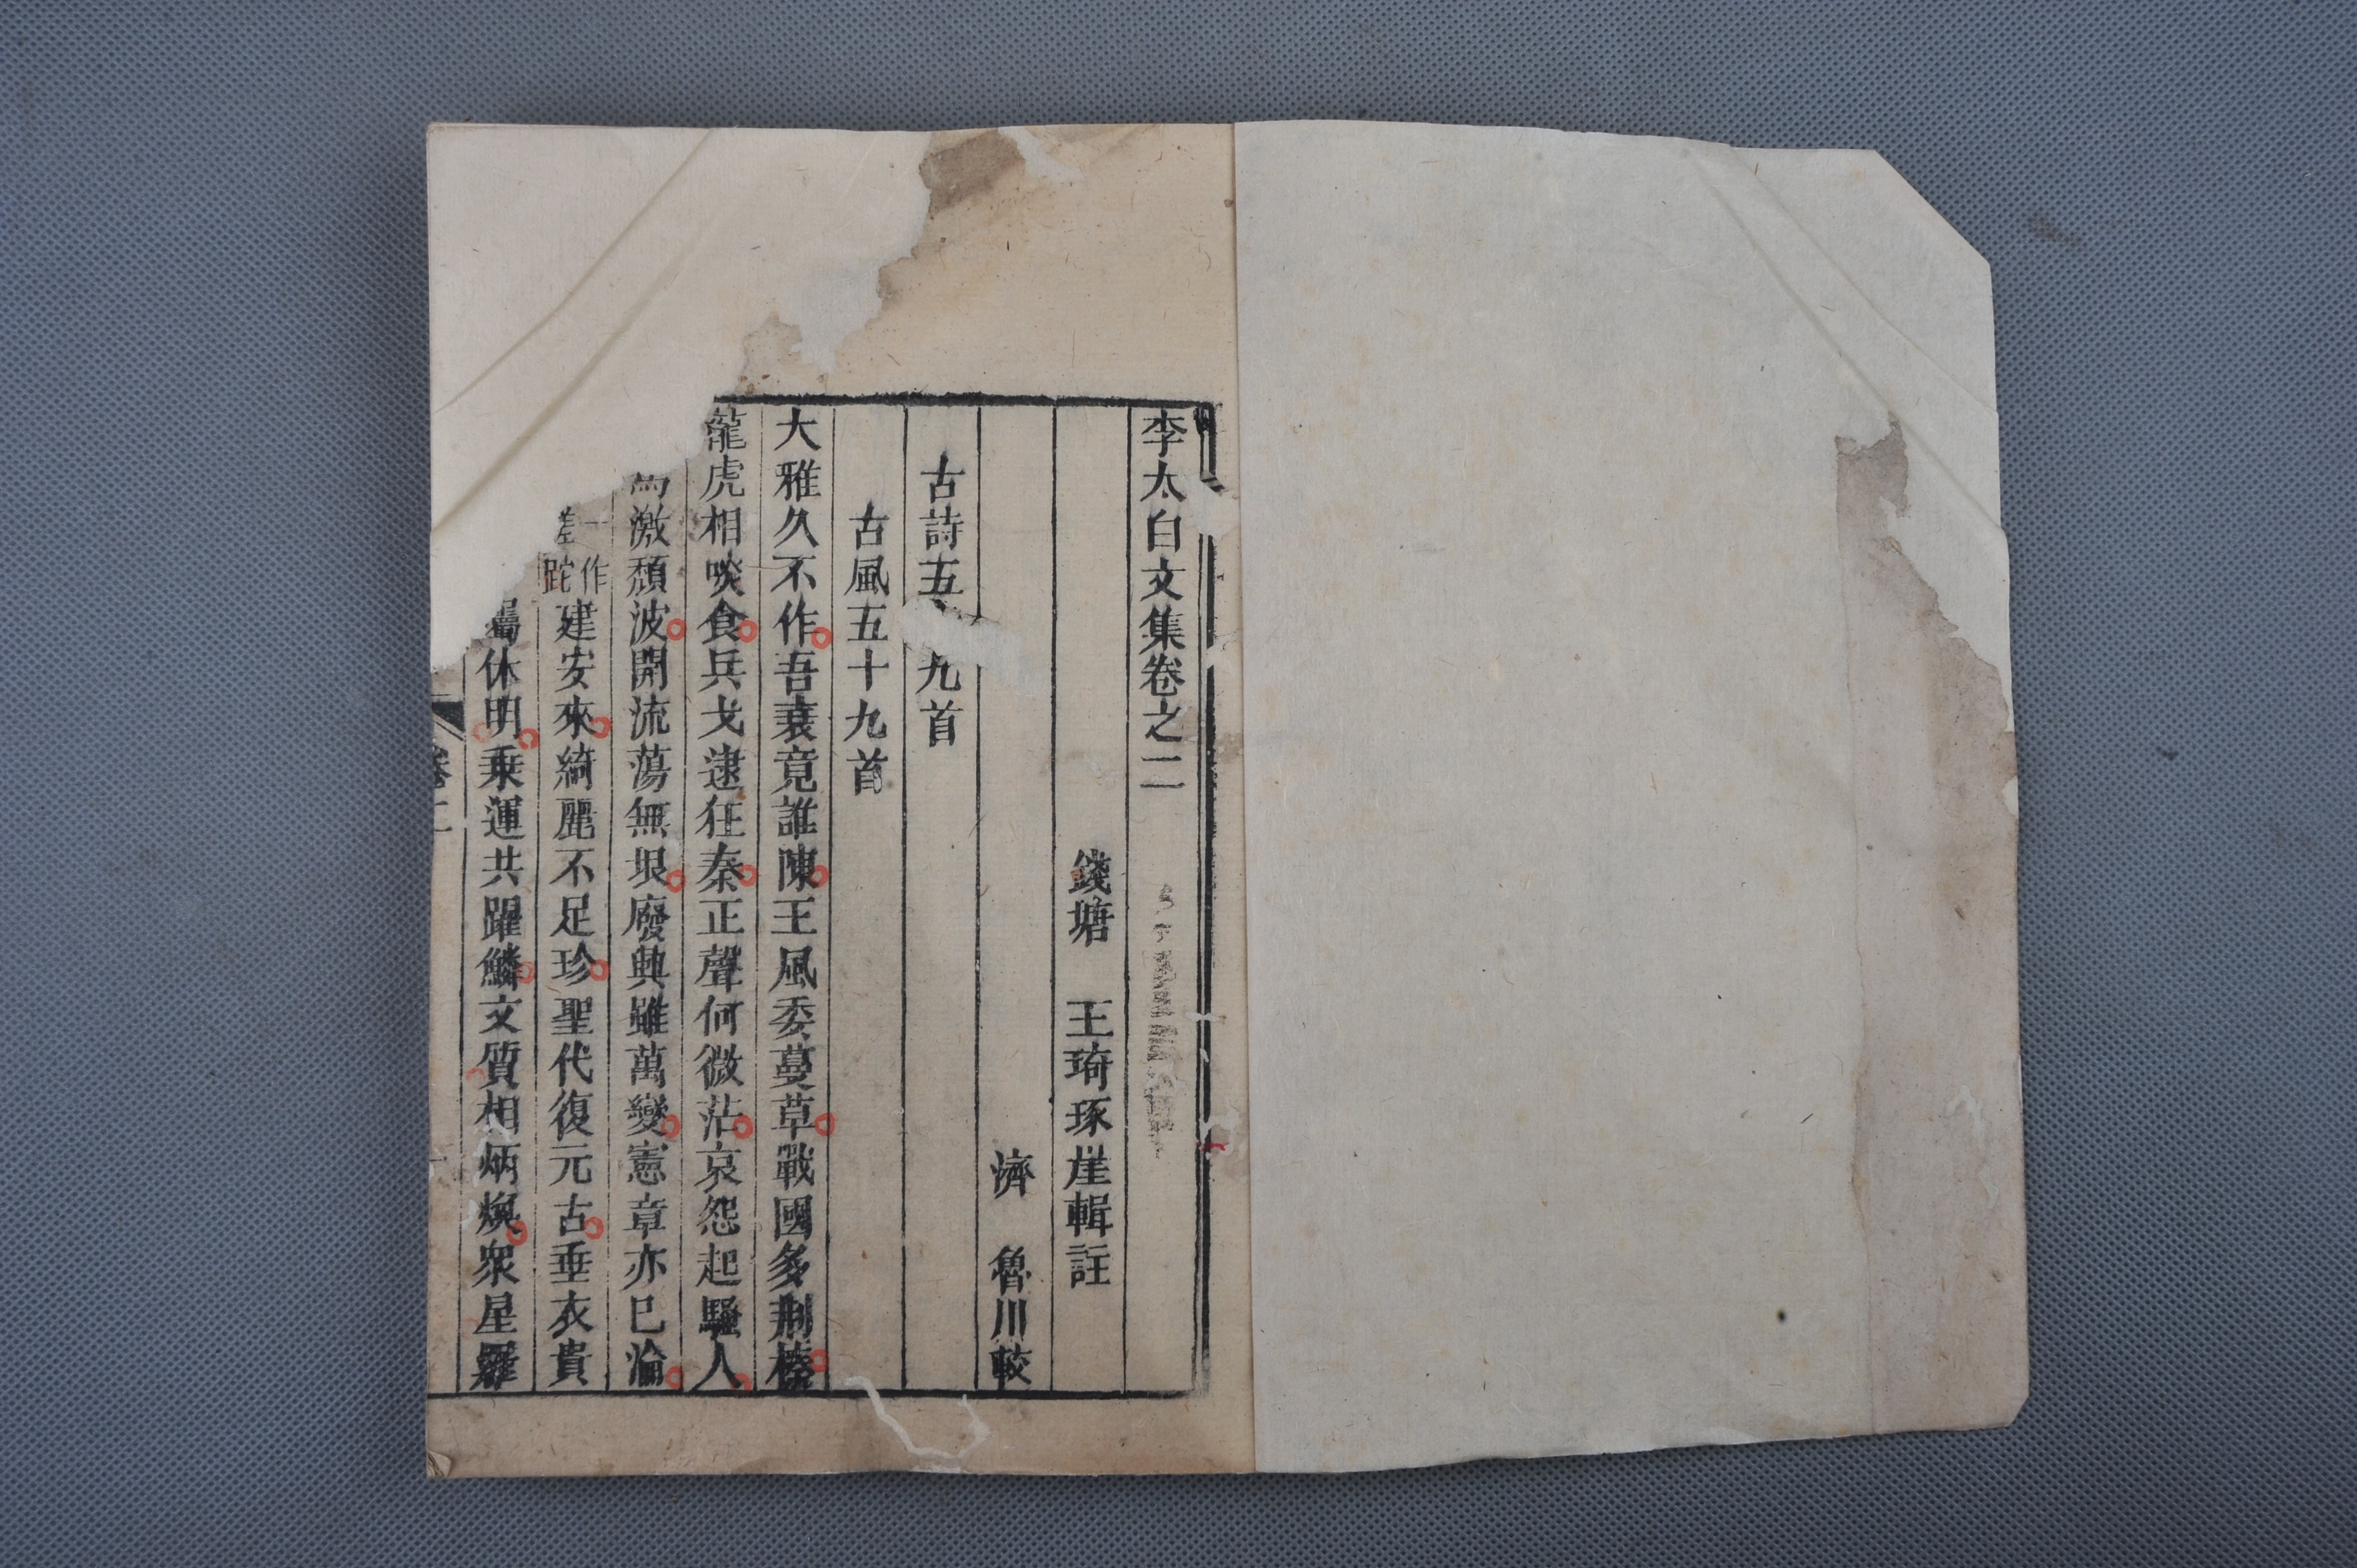 李太白文集卷之二
錢塘 王琦琢崖輯註
濟 魯川較
古詩五 九首
古風五十九首
大雅久不作吾衰竟誰陳王風委蔓草戰國多荆榛
龍虎相啖食兵戈逮狂秦正聲何微茫哀怨起騷人
馬激頽波開流蕩無垠廢興雖萬變憲章亦已淪
一作 蹉跎 建安來綺麗不足珍聖代復元古垂衣貴
屬休明乗運共躍鱗文質相炳煥衆星羅
卷二